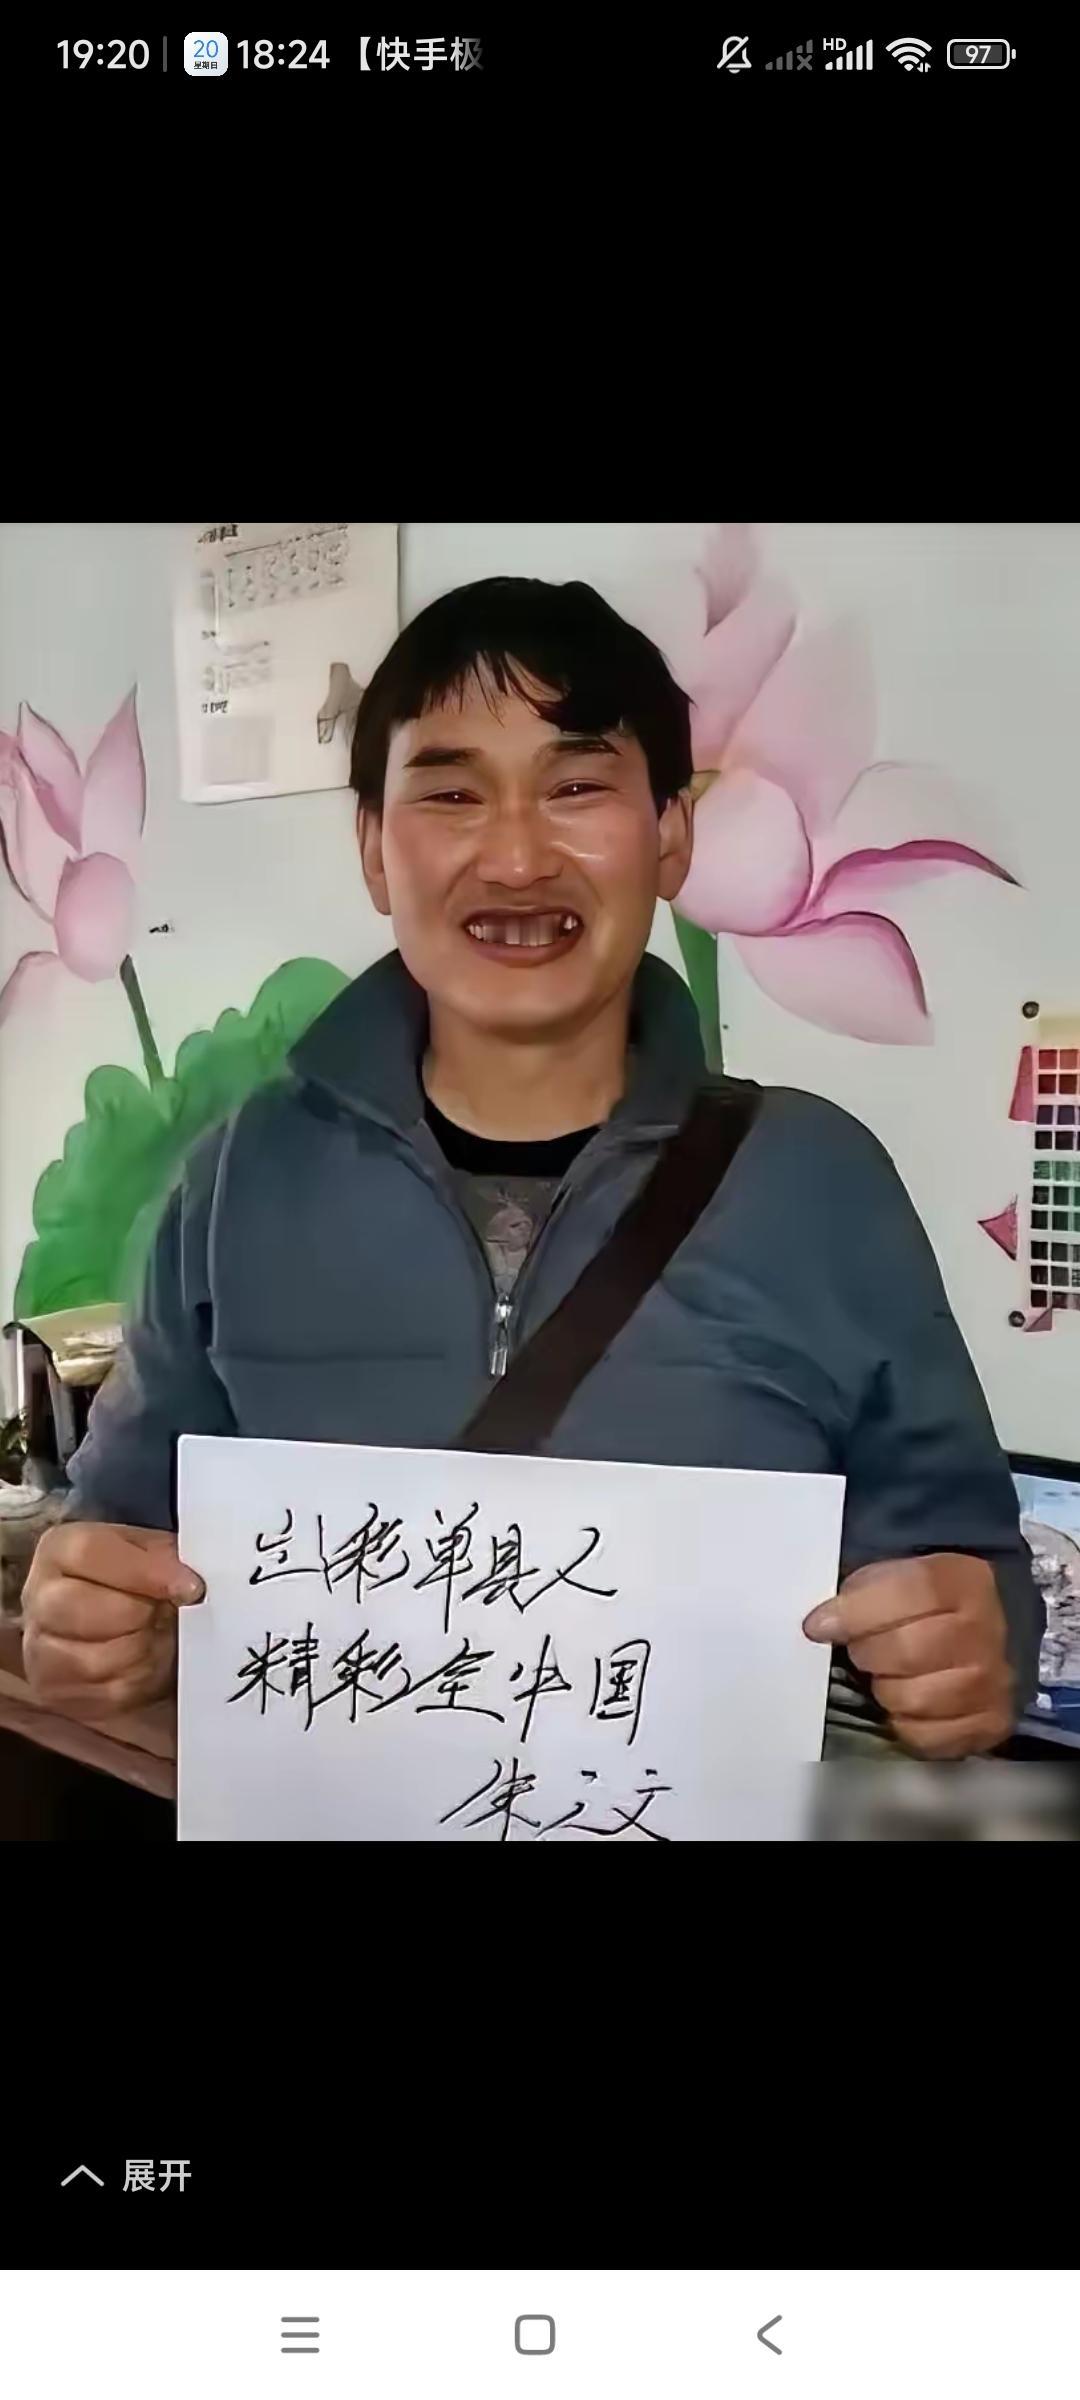 19:20 | 20 星期日 18:24 【快手极
HD 97
出彩单县人
精彩全中国
朱之文
展开